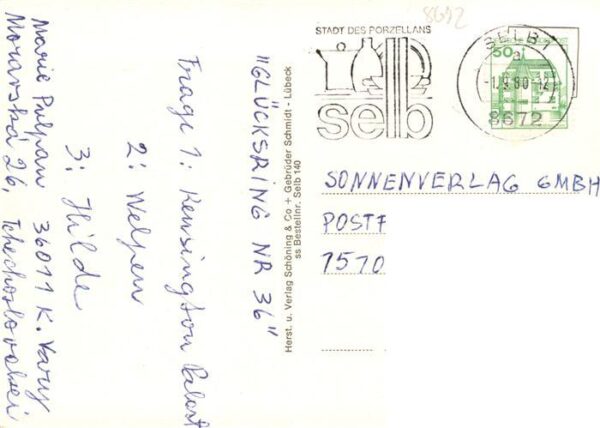 8672
STADT DES PORZELLANS
selb
SELB 1
50
-1.9.80-12
8672
"GLÜCKSRING NR 36"
Frage 1: Kensington Palast
2: Welpen
3: Hilde
Marie 36011 K. Vary
Moravská 26, Tchechoslovakei
Herst. u. Verlag Schöning & Co + Gebrüder Schmidt - Lübeck
ss Bestellnr. Selb 140
SONNENVERLAG GMBH
POSTF
7570